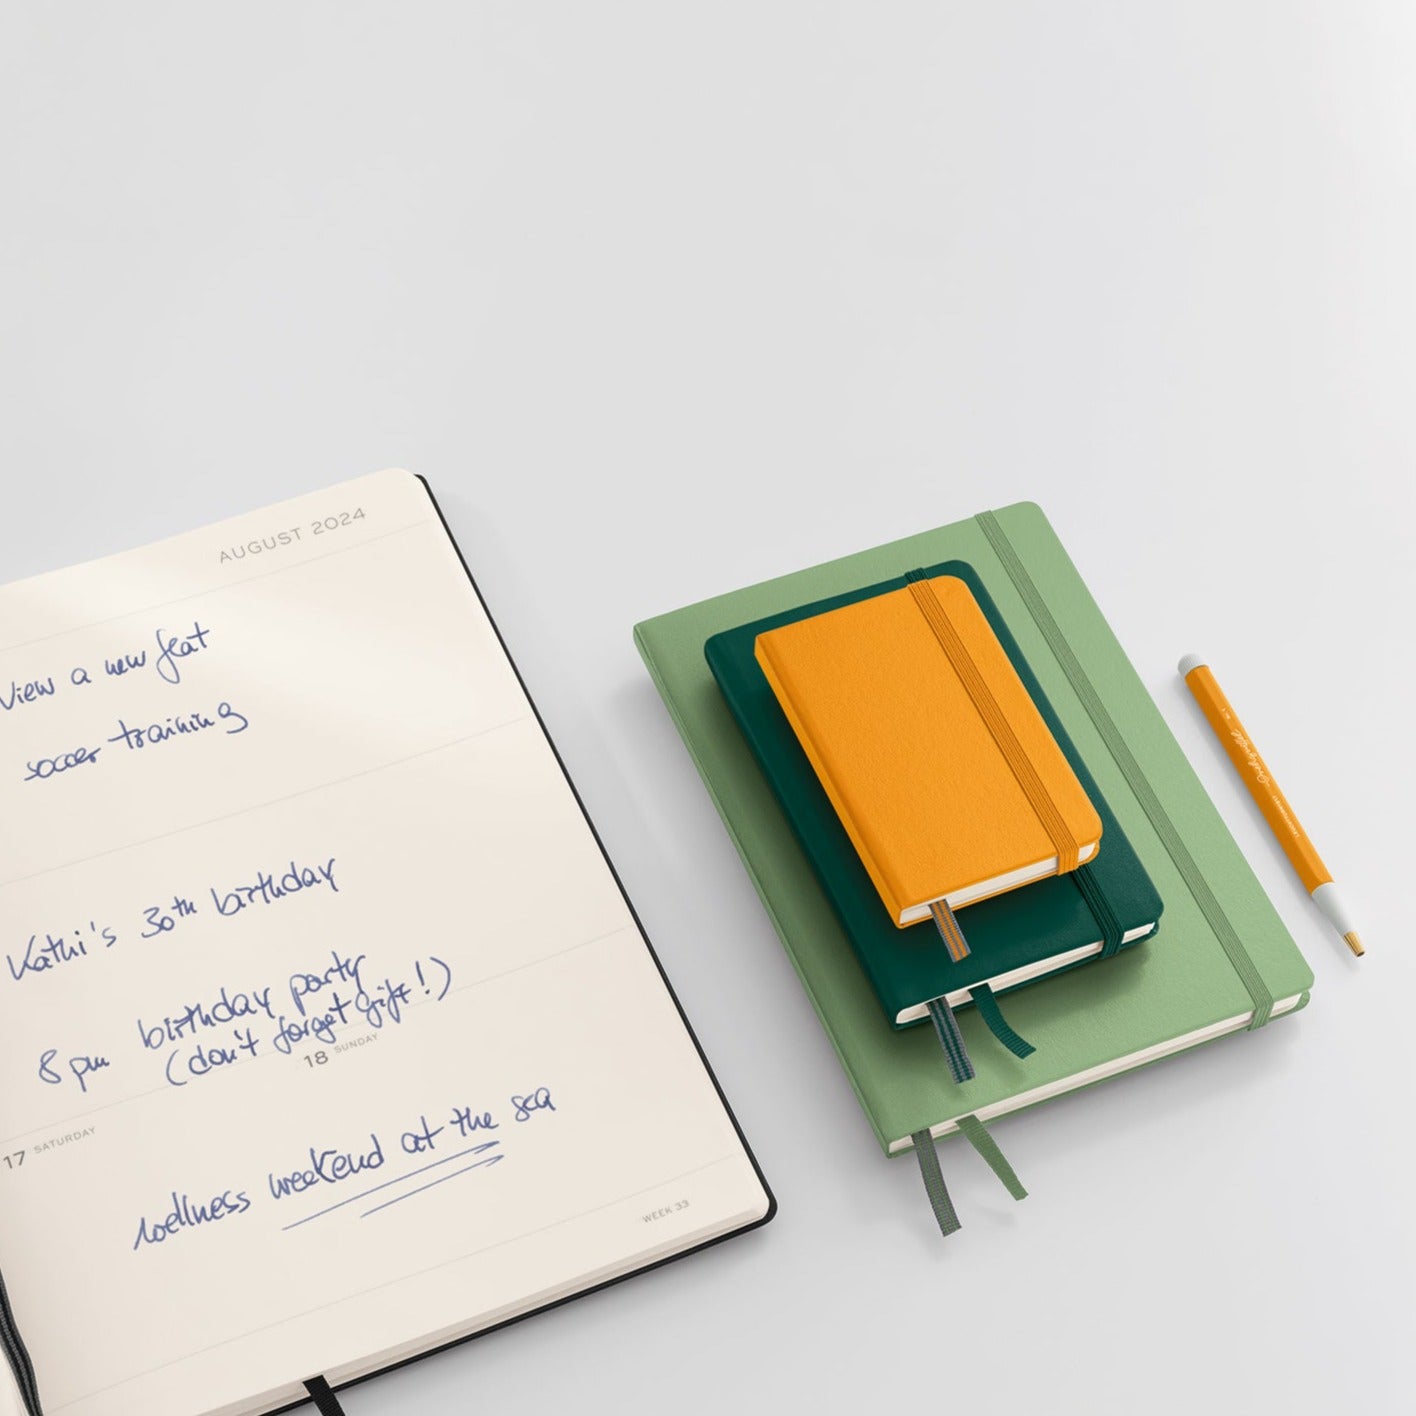 AUGUST 2024
View a new flat
soccer training
Kathi's 30th birthday
8 pm birthday party
(don't forget gift!)
18 SUNDAY
17 SATURDAY
wellness weekend at the sea
WEEK 33